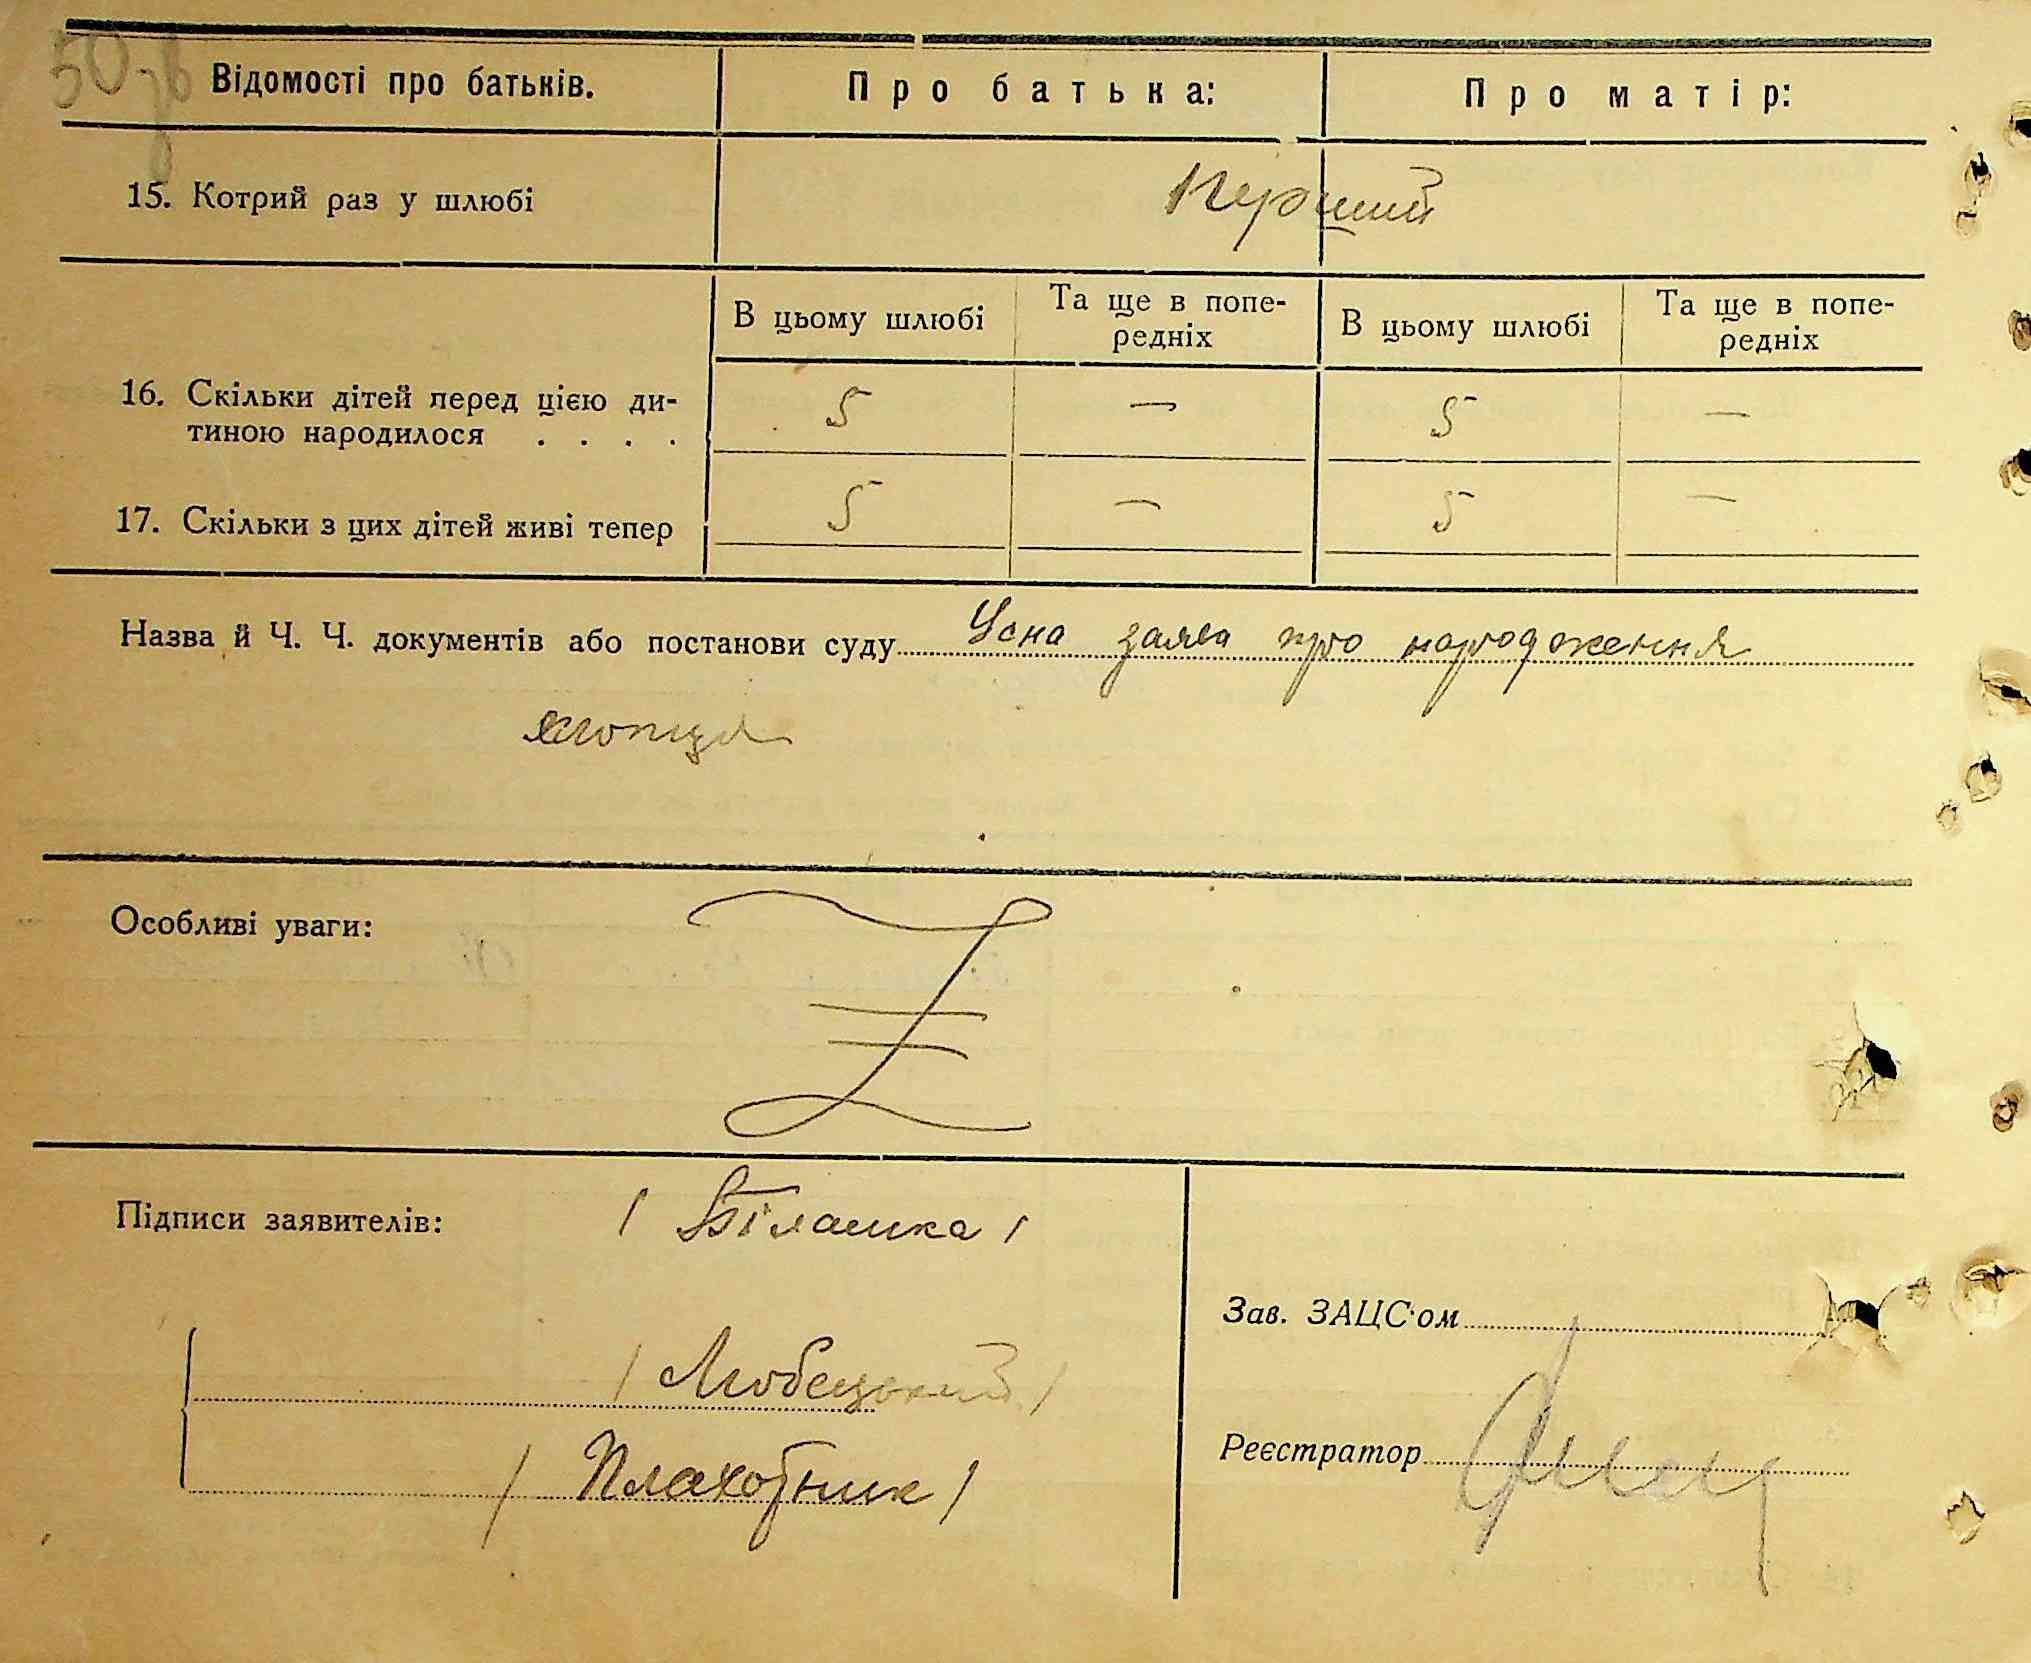 50 зв
Відомості про батьків. Про батька: Про матір:
15. Котрий раз у шлюбі Перший
В цьому шлюбі Та ще в попе-
редніх В цьому шлюбі Та ще в попе-
редніх
16. Скільки дітей перед цією ди-
тиною народилося . . . . 5 — 5 —
17. Скільки з цих дітей живі тепер 5 — 5 —
Назва й Ч. Ч. документів або постанови суду Усна заява про народження
хлопця
Особливі уваги:
Підписи заявителів: / Білашка /
/ Любецький /
/ Плахотник /
Зав. ЗАЦС'ом
Реєстратор